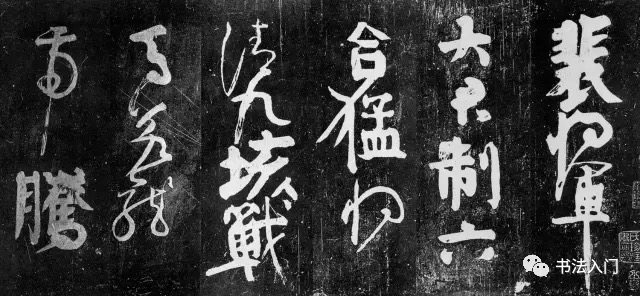 裴將軍
大君制六
合猛將
清九垓戰
馬若龍
虎騰
书法入门